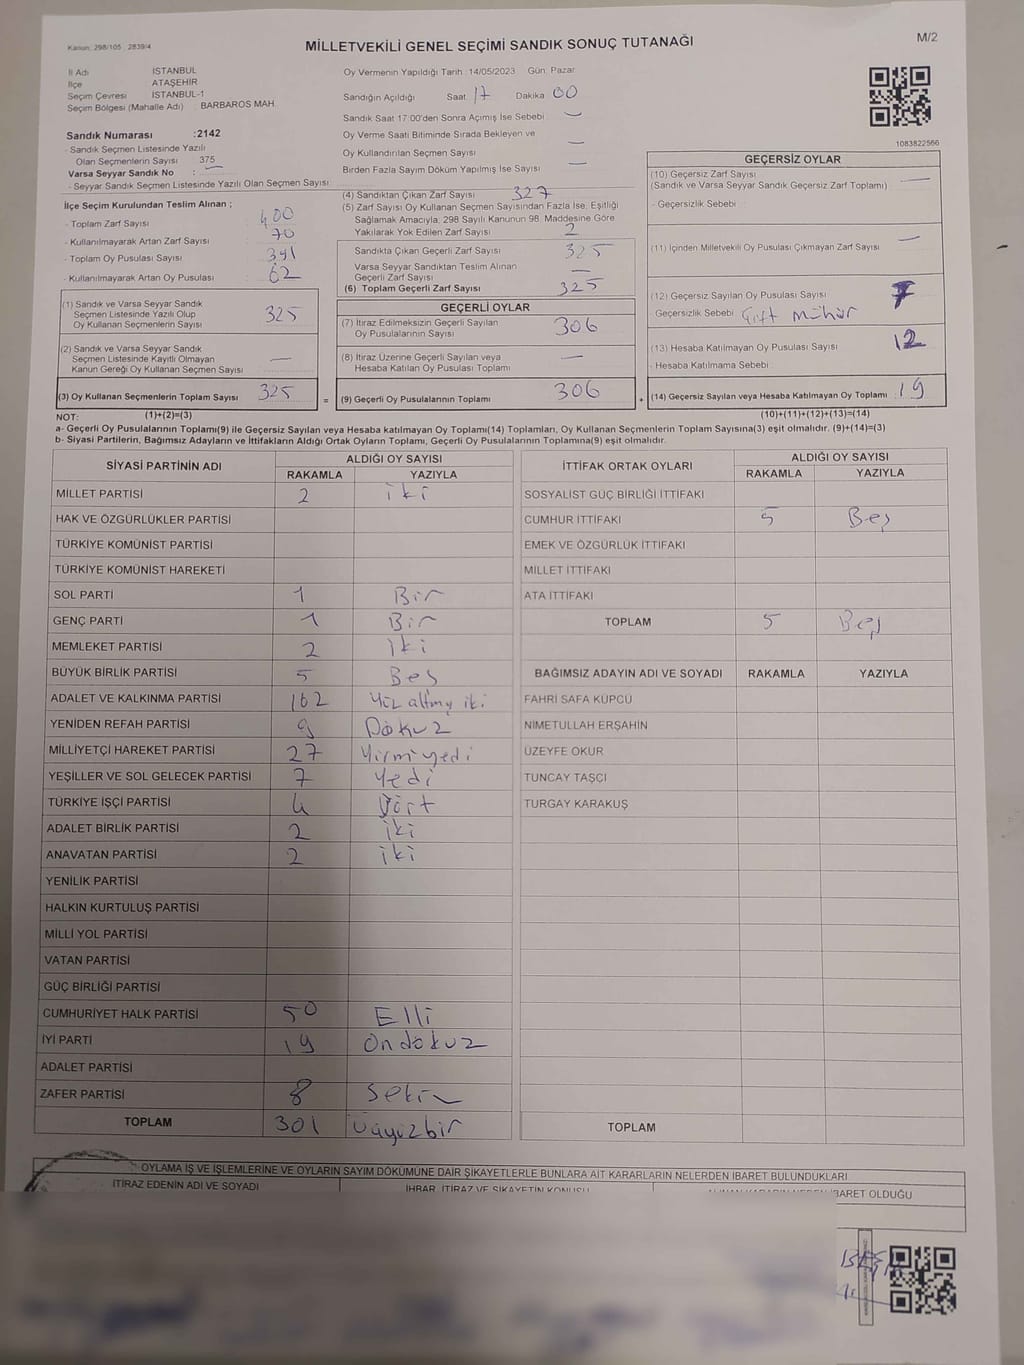 Kanun: 298/105 2839/4
MİLLETVEKİLİ GENEL SEÇİMİ SANDIK SONUÇ TUTANAĞI
M/2
İl Adı İSTANBUL
İlçe ATAŞEHİR
Seçim Çevresi İSTANBUL-1
Seçim Bölgesi (Mahalle Adı) BARBAROS MAH.
Sandık Numarası :2142
- Sandık Seçmen Listesinde Yazılı
Olan Seçmenlerin Sayısı 375
Varsa Seyyar Sandık No : —
- Seyyar Sandık Seçmen Listesinde Yazılı Olan Seçmen Sayısı
İlçe Seçim Kurulundan Teslim Alınan ;
- Toplam Zarf Sayısı 400
- Kullanılmayarak Artan Zarf Sayısı 70
- Toplam Oy Pusulası Sayısı 391
- Kullanılmayarak Artan Oy Pusulası 62
(1) Sandık ve Varsa Seyyar Sandık
Seçmen Listesinde Yazılı Olup
Oy Kullanan Seçmenlerin Sayısı 325
(2) Sandık ve Varsa Seyyar Sandık
Seçmen Listesinde Kayıtlı Olmayan
Kanun Gereği Oy Kullanan Seçmen Sayısı —
(3) Oy Kullanan Seçmenlerin Toplam Sayısı 325
Oy Vermenin Yapıldığı Tarih : 14/05/2023 Gün: Pazar
Sandığın Açıldığı Saat 17 Dakika 00
Sandık Saat 17:00'den Sonra Açımış İse Sebebi —
Oy Verme Saati Bitiminde Sırada Bekleyen ve
Oy Kullandırılan Seçmen Sayısı —
Birden Fazla Sayım Döküm Yapılmış İse Sayısı —
(4) Sandıktan Çıkan Zarf Sayısı 327
(5) Zarf Sayısı Oy Kullanan Seçmen Sayısından Fazla İse, Eşitliği
Sağlamak Amacıyla, 298 Sayılı Kanunun 98. Maddesine Göre
Yakılarak Yok Edilen Zarf Sayısı 2
Sandıkta Çıkan Geçerli Zarf Sayısı 325
Varsa Seyyar Sandıktan Teslim Alınan
Geçerli Zarf Sayısı —
(6) Toplam Geçerli Zarf Sayısı 325
GEÇERLİ OYLAR
(7) İtiraz Edilmeksizin Geçerli Sayılan
Oy Pusulalarının Sayısı 306
(8) İtiraz Üzerine Geçerli Sayılan veya
Hesaba Katılan Oy Pusulası Toplamı —
= (9) Geçerli Oy Pusulalarının Toplamı 306
1083822566
GEÇERSİZ OYLAR
(10) Geçersiz Zarf Sayısı
(Sandık ve Varsa Seyyar Sandık Geçersiz Zarf Toplamı) —
- Geçersizlik Sebebi
(11) İçinden Milletvekili Oy Pusulası Çıkmayan Zarf Sayısı —
(12) Geçersiz Sayılan Oy Pusulası Sayısı 7
- Geçersizlik Sebebi Çift Mühür
(13) Hesaba Katılmayan Oy Pusulası Sayısı 12
- Hesaba Katılmama Sebebi
+ (14) Geçersiz Sayılan veya Hesaba Katılmayan Oy Toplamı : 19
NOT: (1)+(2)=(3) (10)+(11)+(12)+(13)=(14)
a- Geçerli Oy Pusulalarının Toplamı(9) ile Geçersiz Sayılan veya Hesaba katılmayan Oy Toplamı(14) Toplamları, Oy Kullanan Seçmenlerin Toplam Sayısına(3) eşit olmalıdır. (9)+(14)=(3)
b- Siyasi Partilerin, Bağımsız Adayların ve İttifakların Aldığı Ortak Oyların Toplamı, Geçerli Oy Pusulalarının Toplamına(9) eşit olmalıdır.
SİYASİ PARTİNİN ADI ALDIĞI OY SAYISI
RAKAMLA YAZIYLA
MİLLET PARTİSİ 2 iki
HAK VE ÖZGÜRLÜKLER PARTİSİ
TÜRKİYE KOMÜNİST PARTİSİ
TÜRKİYE KOMÜNİST HAREKETİ
SOL PARTİ 1 Bir
GENÇ PARTİ 1 Bir
MEMLEKET PARTİSİ 2 İki
BÜYÜK BİRLİK PARTİSİ 5 Beş
ADALET VE KALKINMA PARTİSİ 162 Yüz altmış iki
YENİDEN REFAH PARTİSİ 9 Dokuz
MİLLİYETÇİ HAREKET PARTİSİ 27 Yirmi yedi
YEŞİLLER VE SOL GELECEK PARTİSİ 7 Yedi
TÜRKİYE İŞÇİ PARTİSİ 4 Dört
ADALET BİRLİK PARTİSİ 2 iki
ANAVATAN PARTİSİ 2 iki
YENİLİK PARTİSİ
HALKIN KURTULUŞ PARTİSİ
MİLLİ YOL PARTİSİ
VATAN PARTİSİ
GÜÇ BİRLİĞİ PARTİSİ
CUMHURİYET HALK PARTİSİ 50 Elli
İYİ PARTİ 19 Ondokuz
ADALET PARTİSİ
ZAFER PARTİSİ 8 Sekiz
TOPLAM 301 Üçyüzbir
İTTİFAK ORTAK OYLARI ALDIĞI OY SAYISI
RAKAMLA YAZIYLA
SOSYALİST GÜÇ BİRLİĞİ İTTİFAKI
CUMHUR İTTİFAKI 5 Beş
EMEK VE ÖZGÜRLÜK İTTİFAKI
MİLLET İTTİFAKI
ATA İTTİFAKI
TOPLAM 5 Beş
BAĞIMSIZ ADAYIN ADI VE SOYADI RAKAMLA YAZIYLA
FAHRİ SAFA KÜPCÜ
NİMETULLAH ERŞAHİN
ÜZEYFE OKUR
TUNCAY TAŞÇI
TURGAY KARAKUŞ
TOPLAM
OYLAMA İŞ VE İŞLEMLERİNE VE OYLARIN SAYIM DÖKÜMÜNE DAİR ŞİKAYETLERLE BUNLARA AİT KARARLARIN NELERDEN İBARET BULUNDUKLARI
İTİRAZ EDENİN ADI VE SOYADI İHBAR, İTİRAZ VE ŞİKAYETİN KONUSU ALINAN KARARIN NEDEN İBARET OLDUĞU